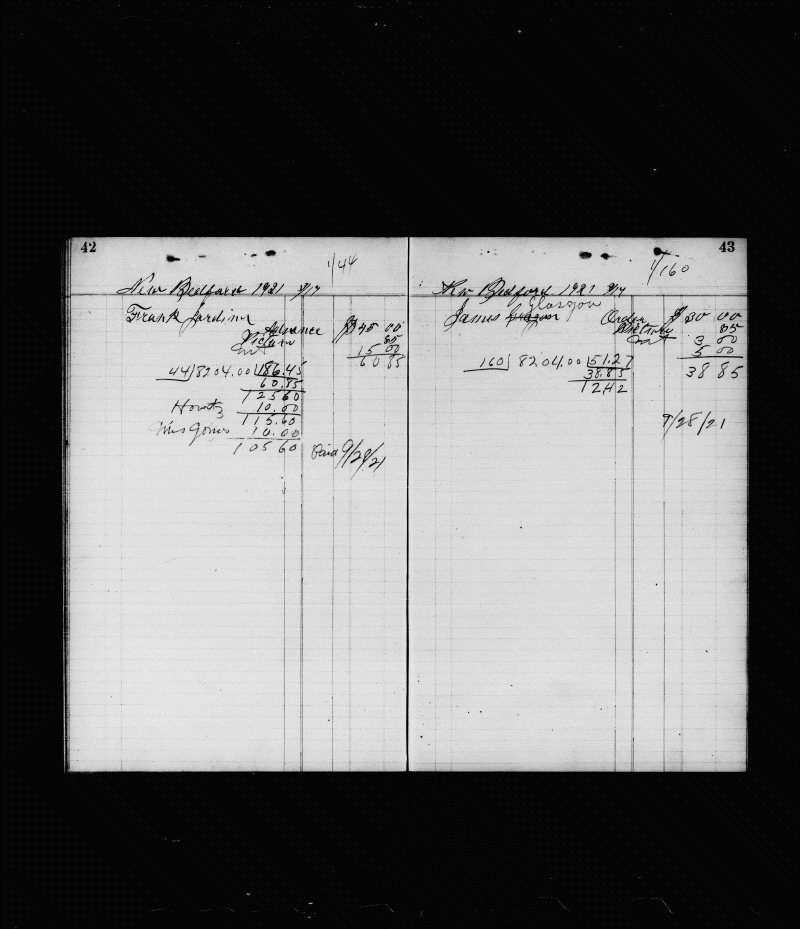 42
1/44
New Bedford 1921 9/17
Frank Jardine
Advance $ 45 00
85
15 00
60 85
44/8204.00/186.45
60.85
125 60
10.00
115.60
Mrs Jones 10.00
105 60 Paid 9/28/21
43
1/160
New Bedford 1921 9/17
Glasgow
James
Order $ 30 00
85
3 00
5 00
38 85
160/8204.00/51.27
38.85
12.42
9/28/21